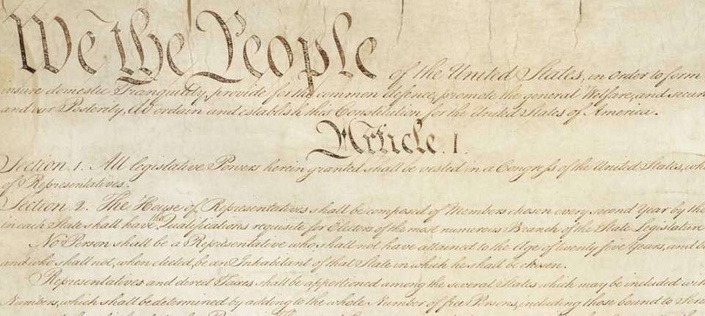 We the People of the United States, in order to form
insure domestic Tranquility, provide for the common defence, promote the general Welfare, and secure
and our Posterity, do ordain and establish this Constitution for the United States of America.
Article. I.
Section. 1. All legislative Powers herein granted shall be vested in a Congress of the United States, wh
of Representatives.
Section. 2. The House of Representatives shall be composed of Members chosen every second Year by the
in each State shall have the Qualifications requisite for Electors of the most numerous Branch of the State Legislature
No Person shall be a Representative who shall not have attained to the Age of twenty five Years, and be
and who shall not, when elected, be an Inhabitant of that State in which he shall be chosen.
Representatives and direct Taxes shall be apportioned among the several States which may be included with
Numbers, which shall be determined by adding to the whole Number of free Persons, including those bound to Serv